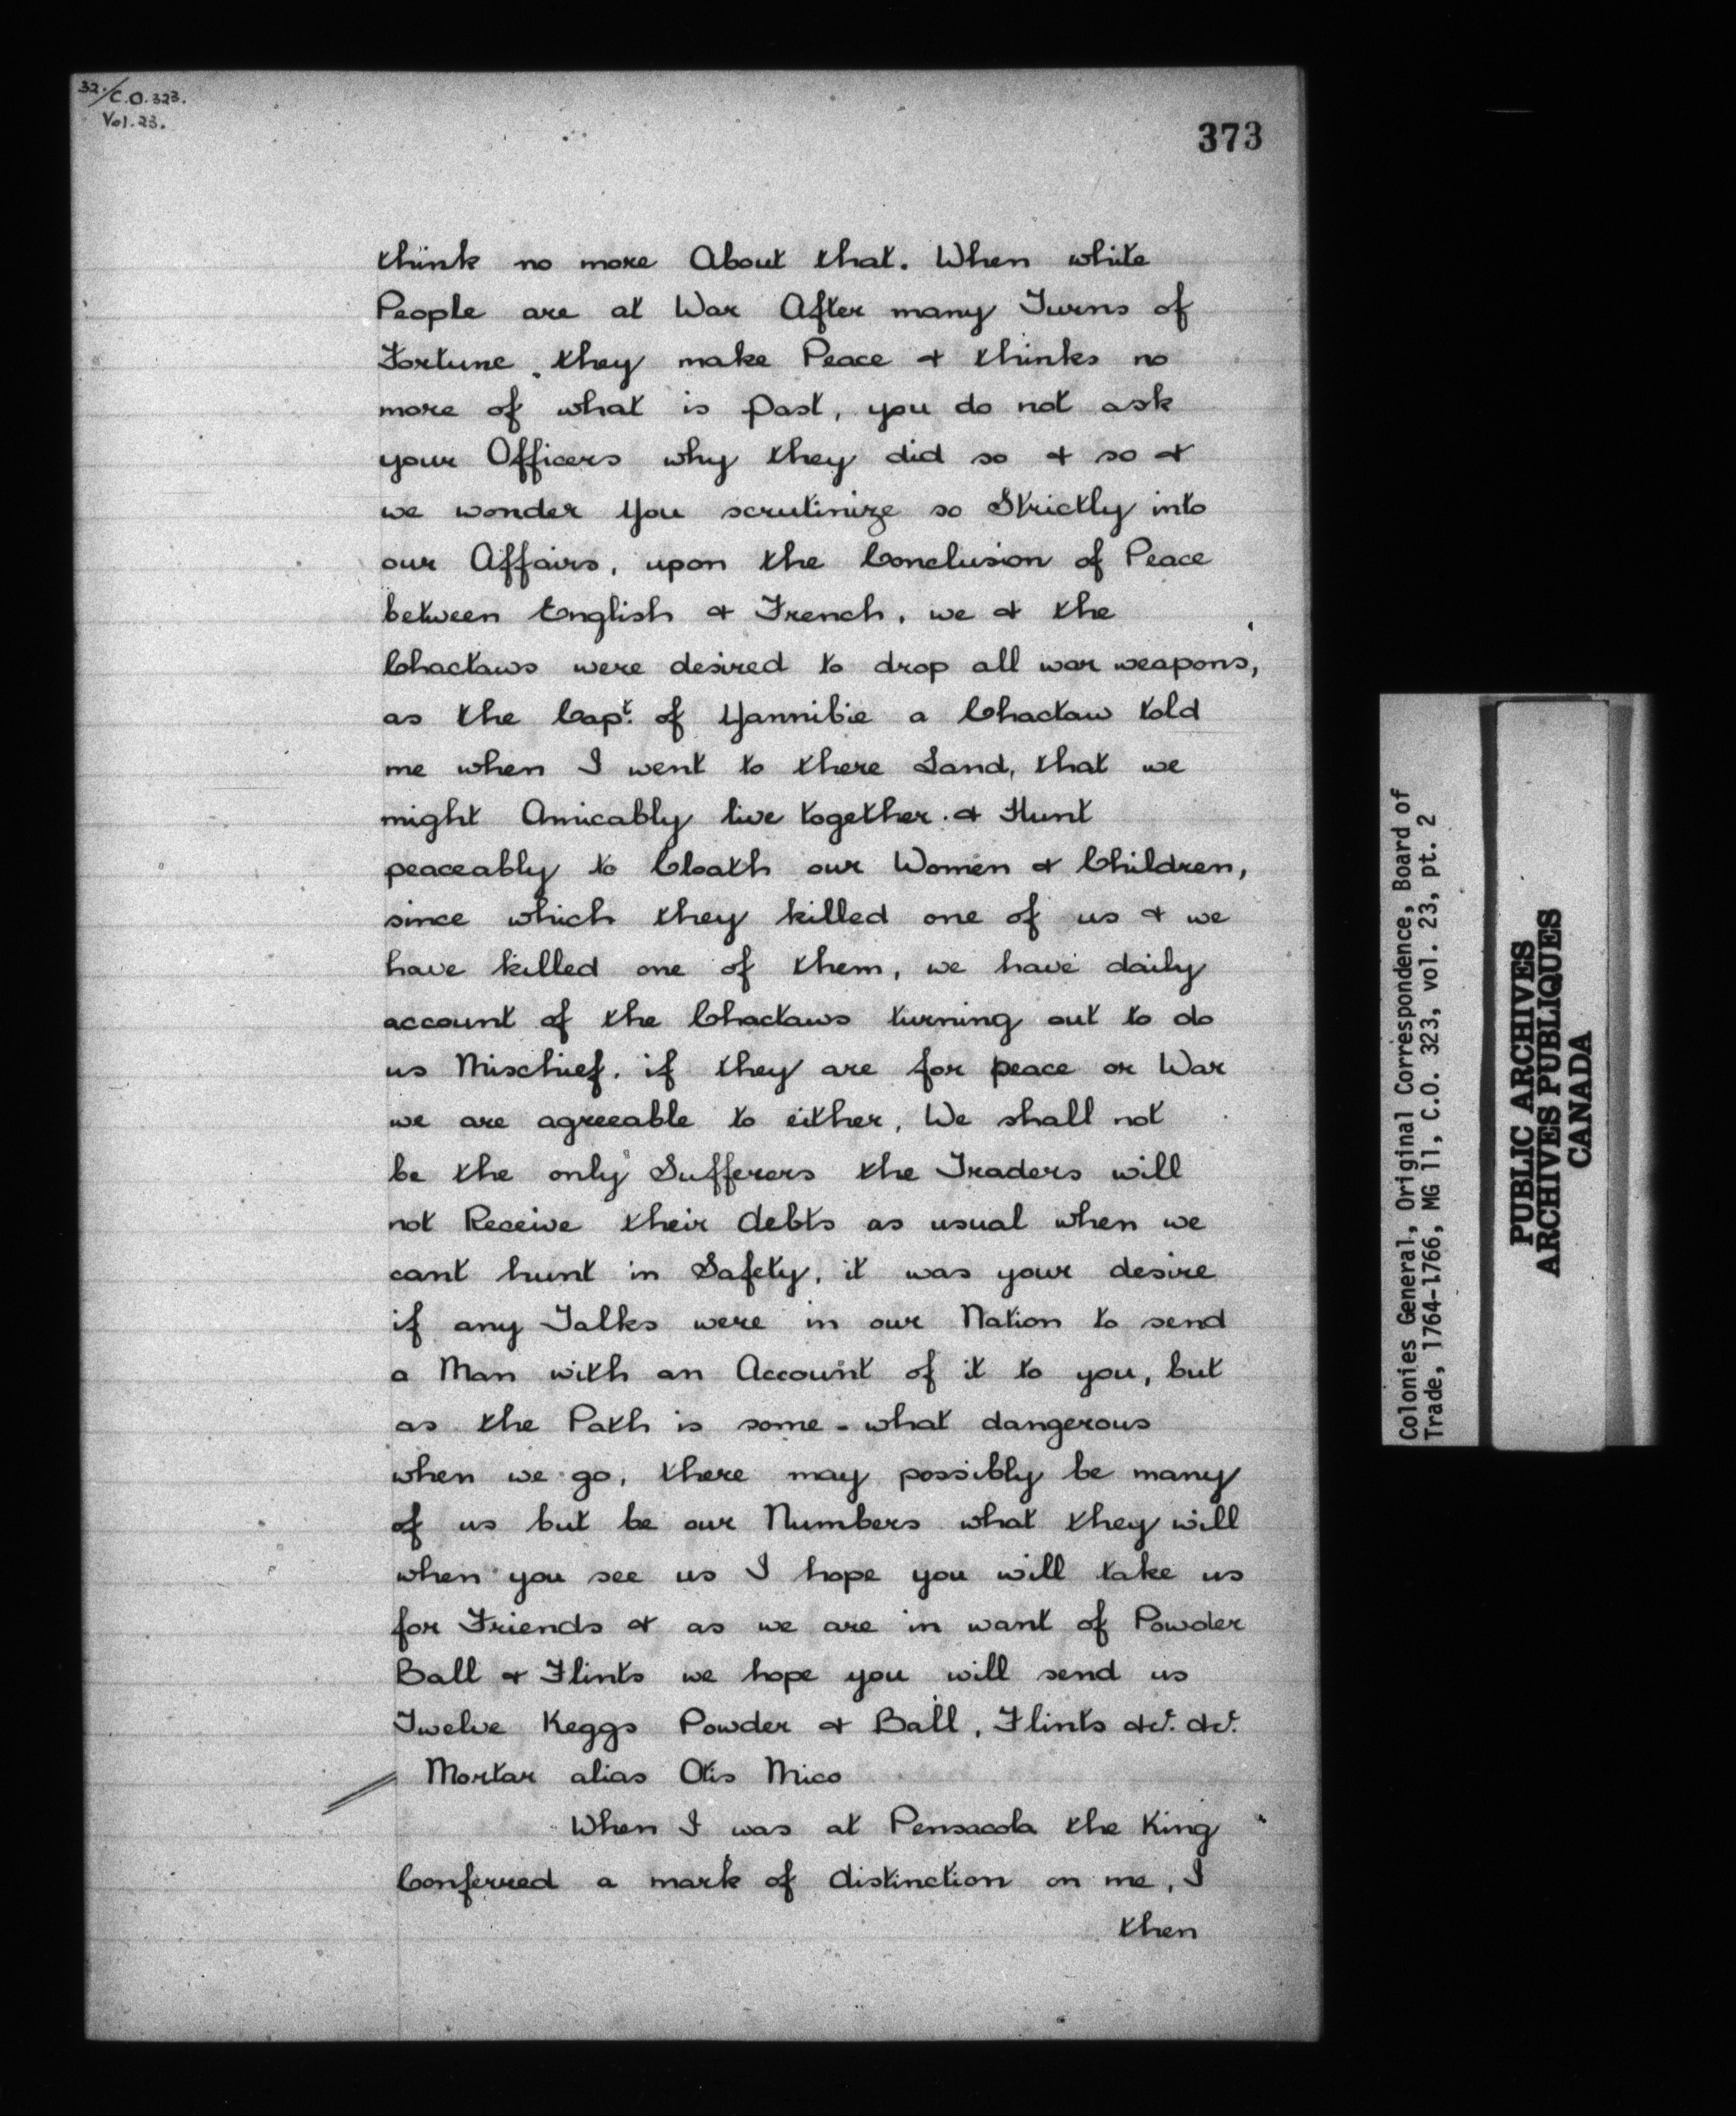 32./C.O.323.
Vol.23.
373
think no more About that. When white
People are at War After many Turns of
Fortune, they make Peace & thinks no
more of what is past, you do not ask
your Officers why they did so & so &
we wonder you scrutinize so Strictly into
our Affairs, upon the Conclusion of Peace
between English & French, we & the
Chactaws were desired to drop all war weapons,
as the Capt. of Yannibie a Chactaw told
me when I went to there Land, that we
might Amicably live together. & Hunt
peaceably to Cloath our Women & Children,
since which they killed one of us & we
have killed one of them, we have daily
account of the Chactaws turning out to do
us Mischief. if they are for peace or War
we are agreeable to either, We shall not
be the only Sufferers the Traders will
not Receive their debts as usual when we
cant hunt in Safety, it was your desire
if any Talks were in our Nation to send
a Man with an Account of it to you, but
as the Path is some-what dangerous
when we go, there may possibly be many
of us but be our Numbers what they will
when you see us I hope you will take us
for Friends & as we are in want of Powder
Ball & Flints we hope you will send us
Twelve Keggs Powder & Ball, Flints &c. &c.
Mortar alias Otis Mico
When I was at Pensacola the King
Conferred a mark of distinction on me, I
then
Colonies General, Original Correspondence, Board of
Trade, 1764-1766, MG 11, C.O. 323, vol. 23, pt. 2
PUBLIC ARCHIVES
ARCHIVES PUBLIQUES
CANADA